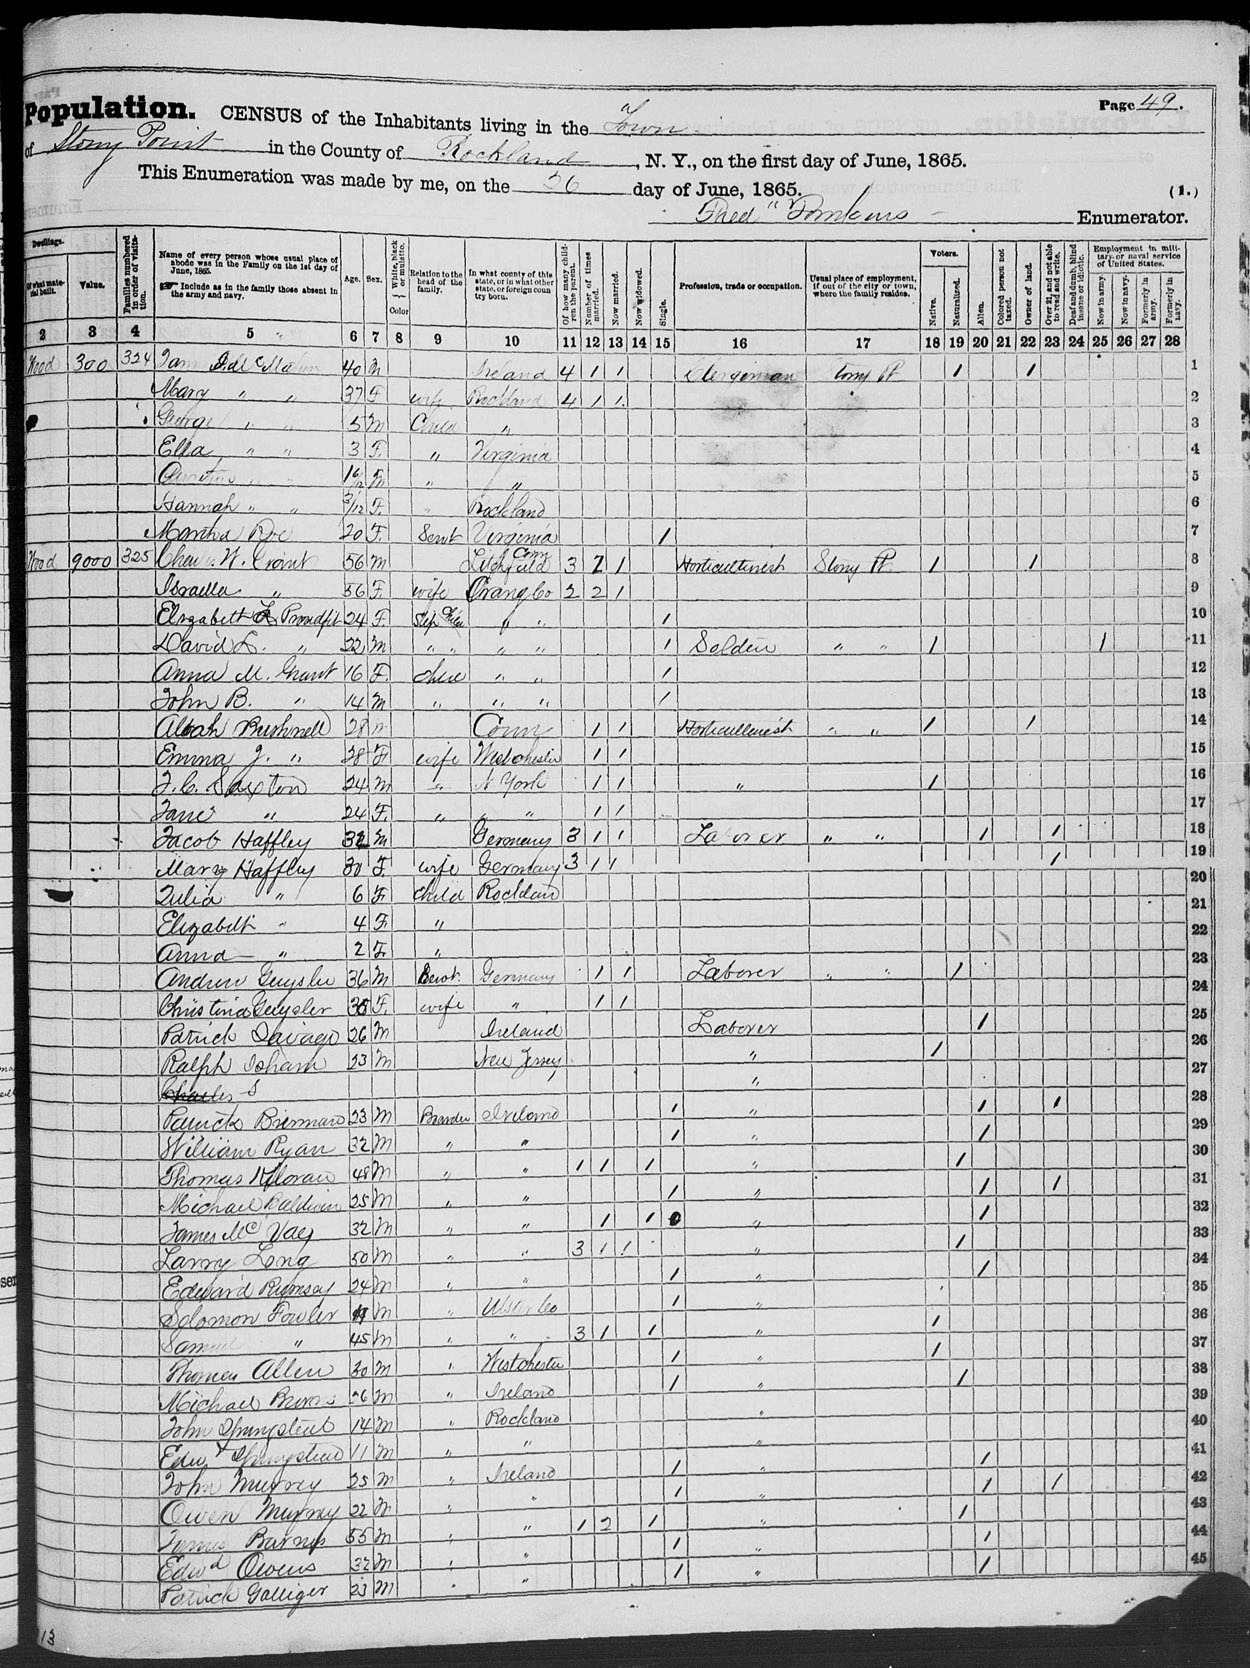 Population. CENSUS of the Inhabitants living in the Town Page 49.
of Stony Point in the County of Rockland, N. Y., on the first day of June, 1865.
This Enumeration was made by me, on the 26 day of June, 1865. (1.)
Enumerator.
Dwellings.
Of what material built.
Value.
Families numbered in order of visitation.
Name of every person whose usual place of abode was in the Family on the 1st day of June, 1865.
Include as in the family those absent in the army and navy.
Age.
Sex.
White, black or mulatto. Color
Relation to the head of the family.
In what county of this state, or in what other state, or foreign country born.
Of how many children the parent.
Number of times married.
Now married.
Now widowed.
Single.
Profession, trade or occupation.
Usual place of employment, if out of the city or town, where the family resides.
Voters.
Native.
Naturalized.
Alien.
Colored person not taxed.
Owner of land.
Over 21, and not able to read and write.
Deaf and dumb, blind insane or idiotic.
Employment in military or naval service of United States.
Now in army.
Now in navy.
Formerly in army.
Formerly in navy.
2 3 4 5 6 7 8 9 10 11 12 13 14 15 16 17 18 19 20 21 22 23 24 25 26 27 28
Wood 300 324 40 M Ireland 4 1 1 Clergiman Stony Pt 1 1 1
Mary " " 37 F wife Rockland 4 1 1 2
George " " 5 M Child " 3
Ella " " 3 F " Virginia 4
" " 5
Hannah " " 3/12 F " Rockland 6
Martha Roe 20 F Servt Virginia 1 7
Wood 9000 325 Charles W. Grant 56 M Litchfield Conn 3 2 1 Horticulturist Stony Pt 1 1 8
Israella " 56 F wife Orange Co 2 2 1 9
Elizabeth Proudfit 24 F Step Child " " 1 10
David L. " 22 M " " " " 1 Soldier " " 1 1 11
Anna M. Grant 16 F child " " 1 12
John B. " 14 M " " " 1 13
Bushnell 28 m Conn 1 1 Horticulturist " " 1 1 14
Emma J. " 28 F wife Westchester 1 1 15
Saxton 24 M " N York 1 1 " 1 16
Jane " 24 F " " " 1 1 17
Jacob Haffley 32 M Germany 3 1 1 Laborer " " 1 1 18
Mary Haffley 30 F wife Germany 3 1 1 1 19
Julia " 6 F Child Rockland 20
Elizabeth " 4 F " 21
Anna " 2 F " 22
Andrew Guysler 36 M Germany 1 1 Laborer " " 1 23
Christina Guysler 35 F wife " 1 1 24
Patrick Savage 26 M Ireland Laborer 1 25
Ralph Isham 23 M New Jersey " 1 26
Charles S " 27
Patrick 23 M Boarder Ireland 1 " 1 1 28
William Ryan 32 M " " 1 " 1 29
Thomas 48 M " " 1 1 1 " 1 30
Michael Baldwin 25 M " " 1 " 1 1 31
James McVay 32 M " " 1 1 " 1 32
Larry Long 50 M " " 3 1 1 " 1 33
Edward Rumsay 24 M " " 1 " 1 34
Solomon Fowler M " Ulster Co 1 " 35
Samuel " 45 M " " 3 1 1 " 1 36
Thomas Allen 30 M " Westchester 1 " 1 37
Michael 26 M " Ireland 1 1 38
John Springsteed 14 M " Rockland " 39
Edw Springsteed 11 M " " " 40
John Murrey 25 M " Ireland 1 " 1 41
Owen Murrey 22 M " " 1 " 1 1 42
James Barnes 55 M " " 1 2 1 " 1 43
Edwd Owens 32 M " " 1 " 1 44
Patrick Galliger 23 M " " 1 " 1 45
13